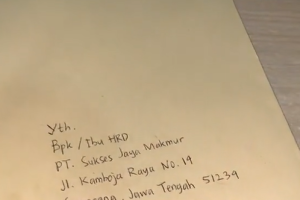 Yth.
Bpk / Ibu HRD
PT. Sukses Jaya Makmur
Jl. Kamboja Raya No. 19
Jawa Tengah 51239